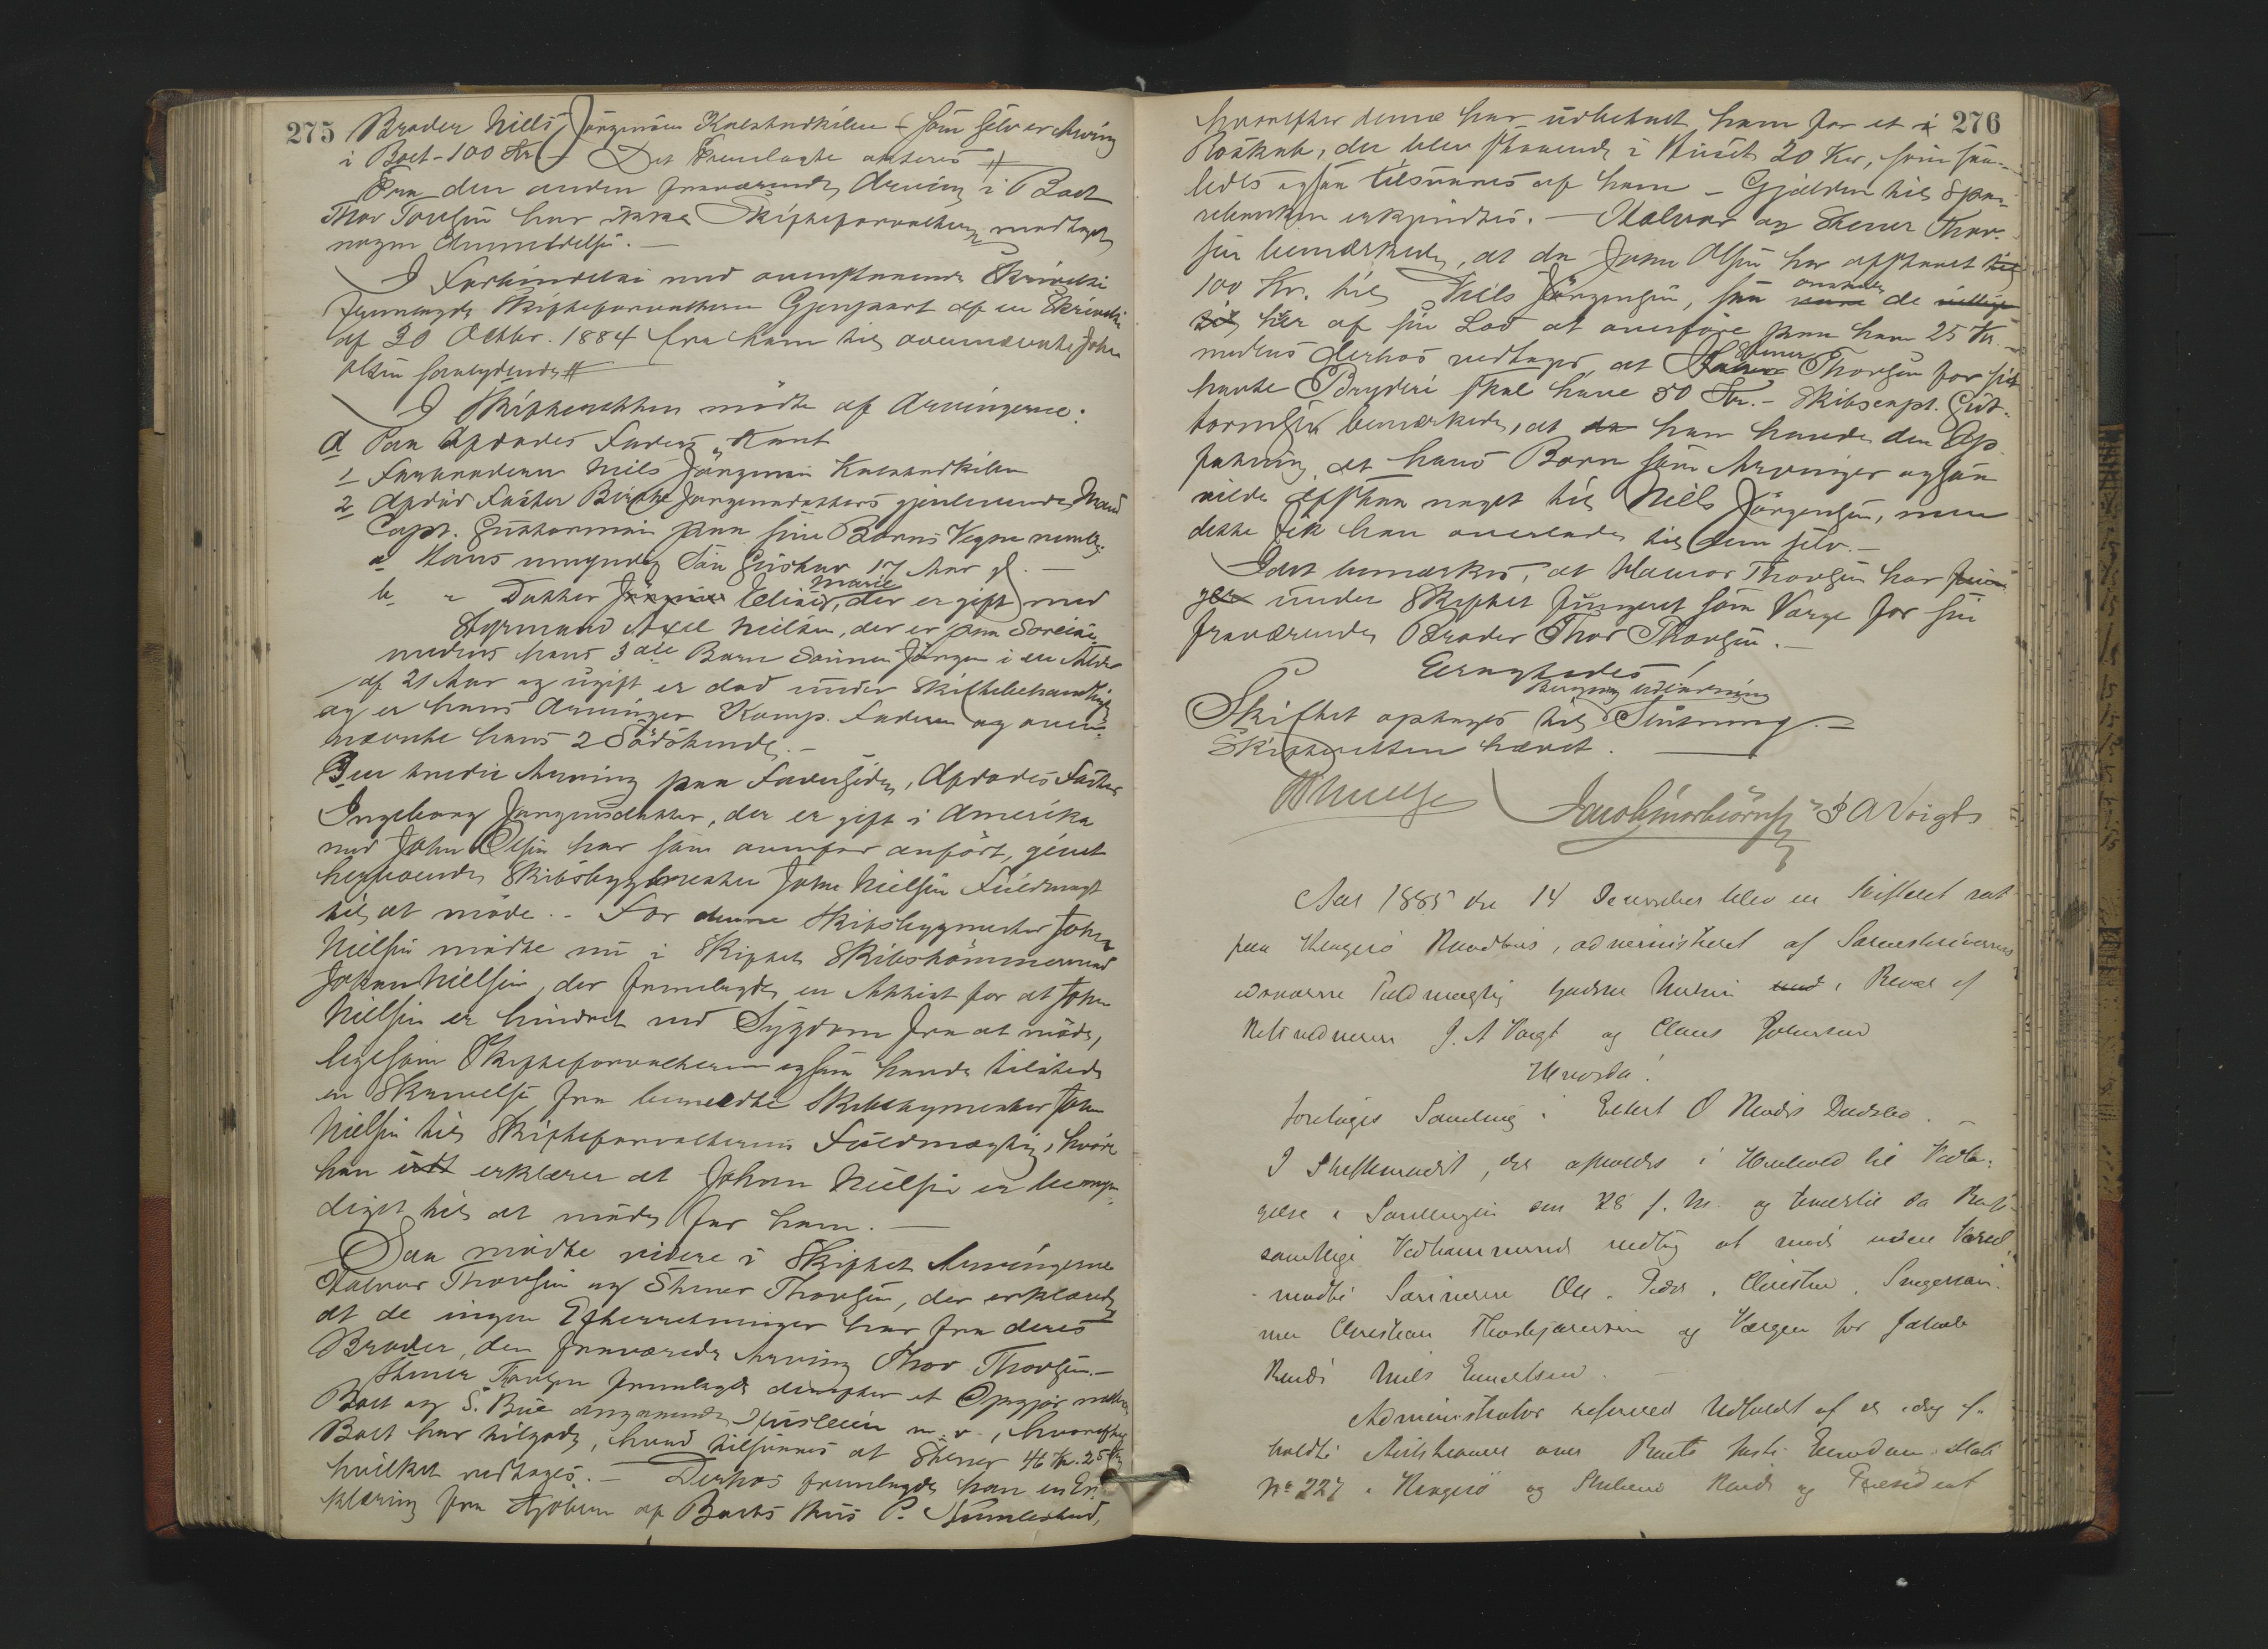 275
Broder Niels Jörgensen Kalstadkilen – som selv er Arving
i Boet – 100 Kr. – Det Fremlagte akteres #
Fra den anden fraværende Arving i Boet
Thor Torsen har ikke Skifteforvalteren modtaget
nogen Anmeldelse. –
I Forbindelse med ovenstaaende Skrivelse
fremlagde Skifteforvalteren Gjenpart af en Skrivelse
af 30 Octbr. 1884 fra ham til ovennævnte John
Olsen saalydende #
I Skifteretten mödte af Arvingerne:
a Paa Afdødes Faders Kant
1 Farbroderen Niels Jörgensen Kalstadkilen
2 Afdød Faster Birthe Jörgensdatters gjenlevende Mand
Capt. Guttormsen paa sine Børns Vegne nemlig:
a Hans umyndige Sön Gustav 17 Aar gl. –
b " Datter Elise Marie, der er gift med
Styrmand Axel Nielsen, der er paa Søreise,
medens hans 3die Barn Sönnen Jörgen i en Alder
af 21 Aar og ugift er død under Skiftebehandlingen
og er hans Arvinger Komp. Faderen og oven-
nævnte hans 2 Södskende. –
3 Den tredie Arving paa Faversiden, Afdødes Faster
Ingeborg Jörgensdatter, der er gift i Amerika
med John Olsen har som ovenfor anført, givet
herboende Skibsbygmester John Nielsen Fuldmagt
til at møde. – For denne Skibsbygmester John
Nielsen mødte nu i Skiftet Skibstömmermand
Johan Nielsen, der fremlagde en Attest for at John
Nielsen er hindret ved Sygdom fra at möde,
ligesom Skifteforvalteren ogsaa havde tilstede
en Skrivelse fra bemeldte Skibsbygmester John
Nielsen til Skifteforvalterens Fuldmægtig, hvori
han erklærer at Johan Nielsen er bemyn-
diget til at möde for ham. –
Saa mødte videre i Skiftet Arvingerne
Halvor Thorsen og Stener Thorsen, der erklærede
at de ingen Efterretninger har fra deres
Broder, den fraværende Arving Thor Thorsen. –
Stener Thorsen fremlagde derefter et Opgjør mellem
Boet og S. Bue angaaende Husleien m. v., hvorefter
Boet har tilgode, hvad tilsvares af Stener 46 Kr. 25 Øre
hvilket vedtages. – Derhos fremlagde han en Er-
klæring fra Kjøberen af Boets Hus P. Numlestad,
276
hvorefter denne har udbetalt ham for et
Röskab, der blev staaende i Huset 20 Kr, som saa-
ledes ogsaa tilsvares af ham – Gjælden til Spa-
rebanken erkjendtes. – Halvor og Stener Thor-
sen bemærkede, at da John Olsen har afstaaet
100 Kr. til Niels Jörgensen, saa ønskede de
her af sin Lod at overføre paa ham 25 Kr. –
medens derhos vedtages, at Stener Thorsen for sit
havte Bryderi skal have 50 Kr. – Skibscapt. Gut-
tormsen bemærkede, at han havde den Op-
fatning, at hans Børn som Arvinger ogsaa
vilde afstaa noget til Niels Jörgensen, men
dette fik han overlade til dem selv. –
Idet bemærkes, at Halvor Thorsen har
under Skiftet fungeret som Værge for sin
fraværende Broder Thor Thorsen. –
Eragtedes!
Skiftet optages til Beregning Udlodning Slutning. –
Skifteretten hævet. –
Jacob Marbiörnsen J A Voigt
Aar 1885 den 14 December blev en Skifteret sat
paa Kragerö Raadhus, administreret af Sorenskriverens
edsvorne Fuldmægtig i Bevær af
Retsvidnerne J. A Voigt og Claus Johansen
Hvorda!
foretoges Samling i Eilert O Dødsbo. –
I Skiftemødet, der afholdes i Henhold til Vedta-
gelse i Samlingen den 28 f. M. og
samtlige Vedkommende vedtog at møde uden Varsel,
mødte Sønnerne Ole, Peder, Christen, Svigersøn-
nen Christian Thorbjørnsen og Værgen for Jakob
Niels
Administrator refererede Udfaldet af den idag af-
holdte Auktion over Boets faste Eiendom Matr
No 227 i Kragerö og